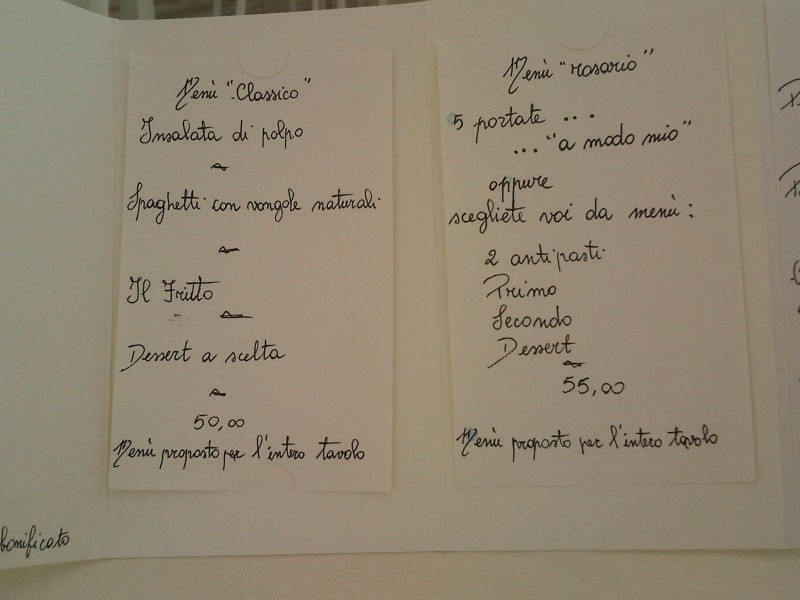 Menù "Classico"
Insalata di polpo
Spaghetti con vongole naturali
Il Fritto
Dessert a scelta
50,00
Menù proposto per l'intero tavolo
bonificato
Menù "rosario"
5 portate ...
... "a modo mio"
oppure
scegliete voi da menù:
2 antipasti
Primo
Secondo
Dessert
55,00
Menù proposto per l'intero tavolo